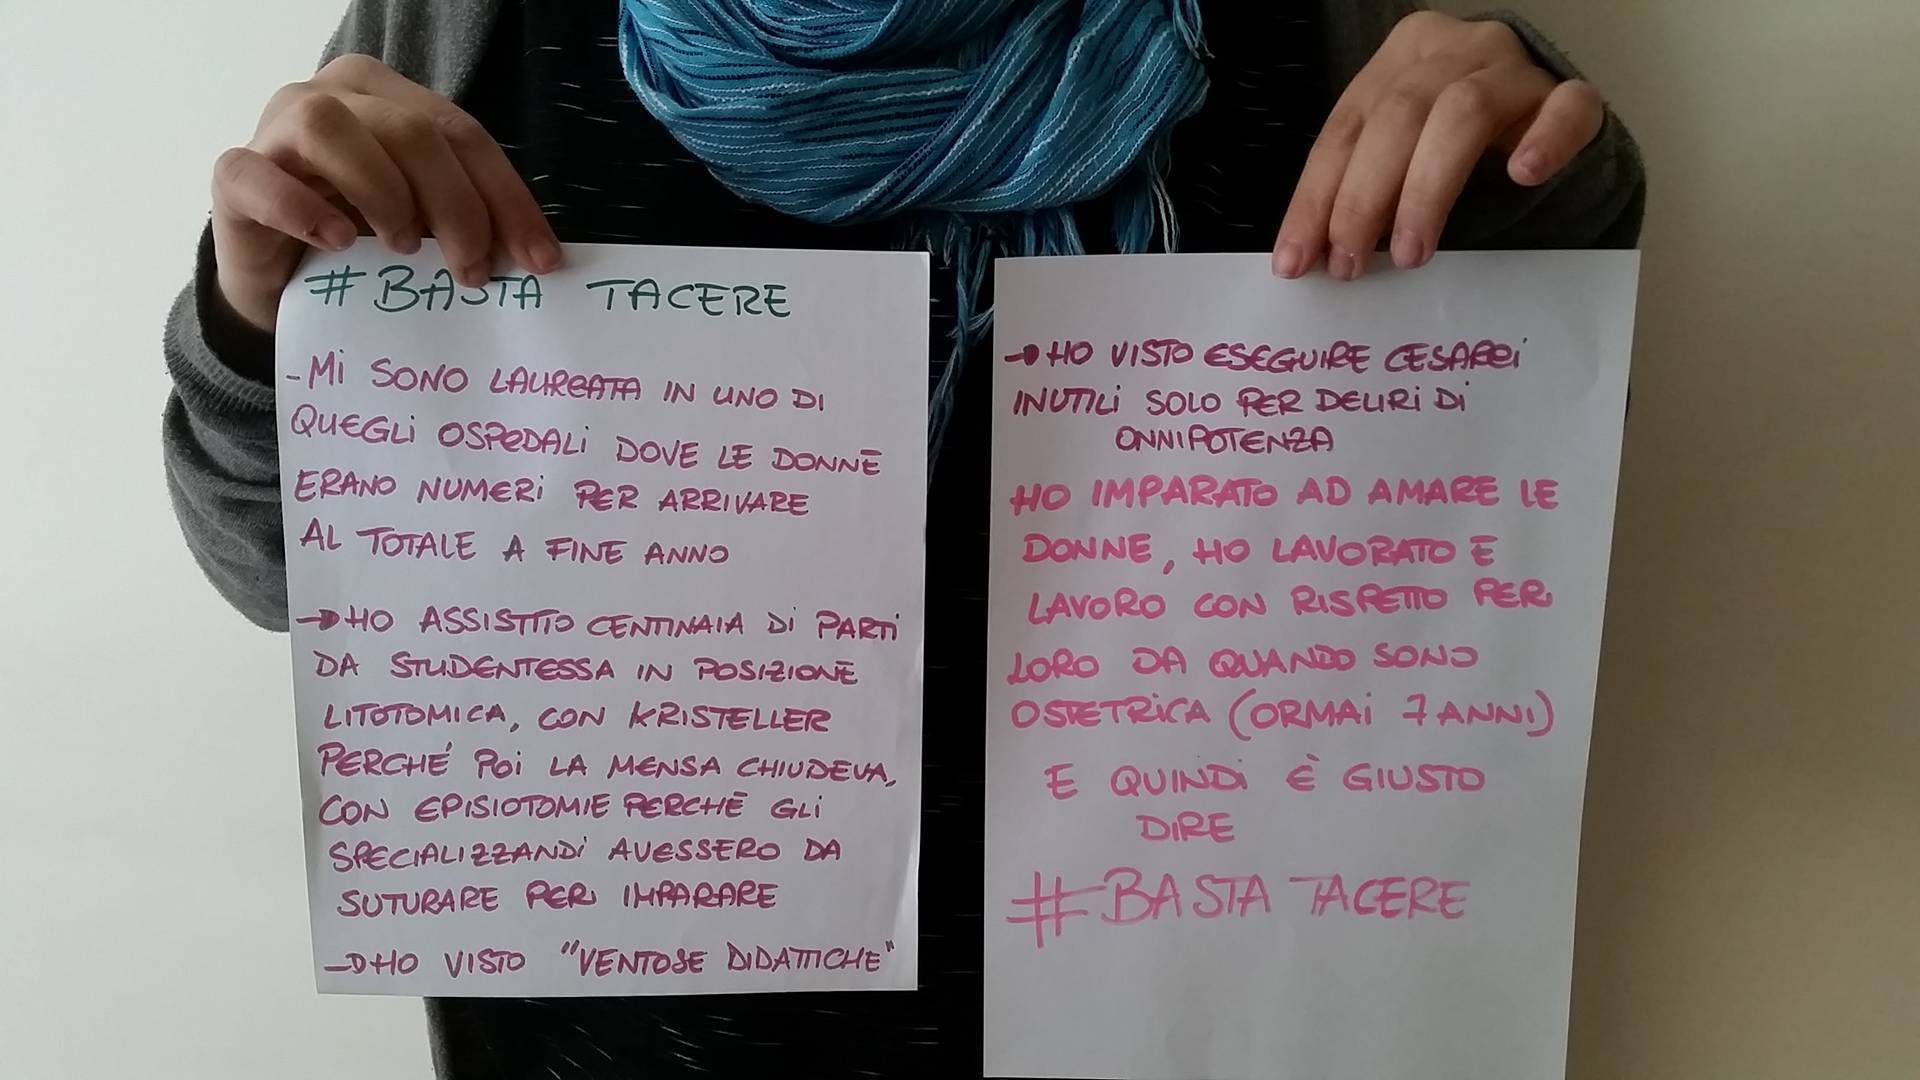 # BASTA TACERE
- Mi SONO LAUREATA IN UNO DI
QUEGLI OSPEDALI DOVE LE DONNE
ERANO NUMERI PER ARRIVARE
AL TOTALE A FINE ANNO
→ HO ASSISTITO CENTINAIA DI PARTI
DA STUDENTESSA IN POSIZIONE
LITOTOMICA, CON KRISTELLER
PERCHÉ POI LA MENSA CHIUDEVA,
CON EPISIOTOMIE PERCHÉ GLI
SPECIALIZZANDI AVESSERO DA
SUTURARE PER IMPARARE
→ HO VISTO "VENTOSE DIDATTICHE"
→ HO VISTO ESEGUIRE CESAREI
INUTILI SOLO PER DELIRI DI
ONNIPOTENZA
HO IMPARATO AD AMARE LE
DONNE, HO LAVORATO E
LAVORO CON RISPETTO PER
LORO DA QUANDO SONO
OSTETRICA (ORMAI 7 ANNI)
E QUINDI È GIUSTO
DIRE
# BASTA TACERE